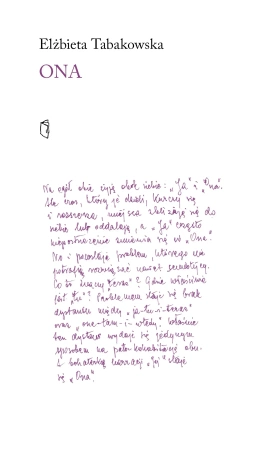 Elżbieta Tabakowska
ONA
Na ogół obie żyją obok siebie: „Ja" i „Ona".
Ale czas, który je dzieli, kurczy się
i rozszerza, miejsca zbliżają się do
siebie lub oddalają, a „Ja" często
niepostrzeżenie zmienia się w „Ona".
No i powstaje problem, którego nie
potrafią rozwiązać nawet semantycy.
Co to znaczy „teraz"? Gdzie właściwie
jest „tu"? Problemem staje się brak
dystansu między „ja-tu-i-teraz"
oraz „one-tam-i-wtedy". Właśnie
ten dystans wydaje się jedynym
sposobem na
bohaterką narracji „ja" staje
się „Ona".